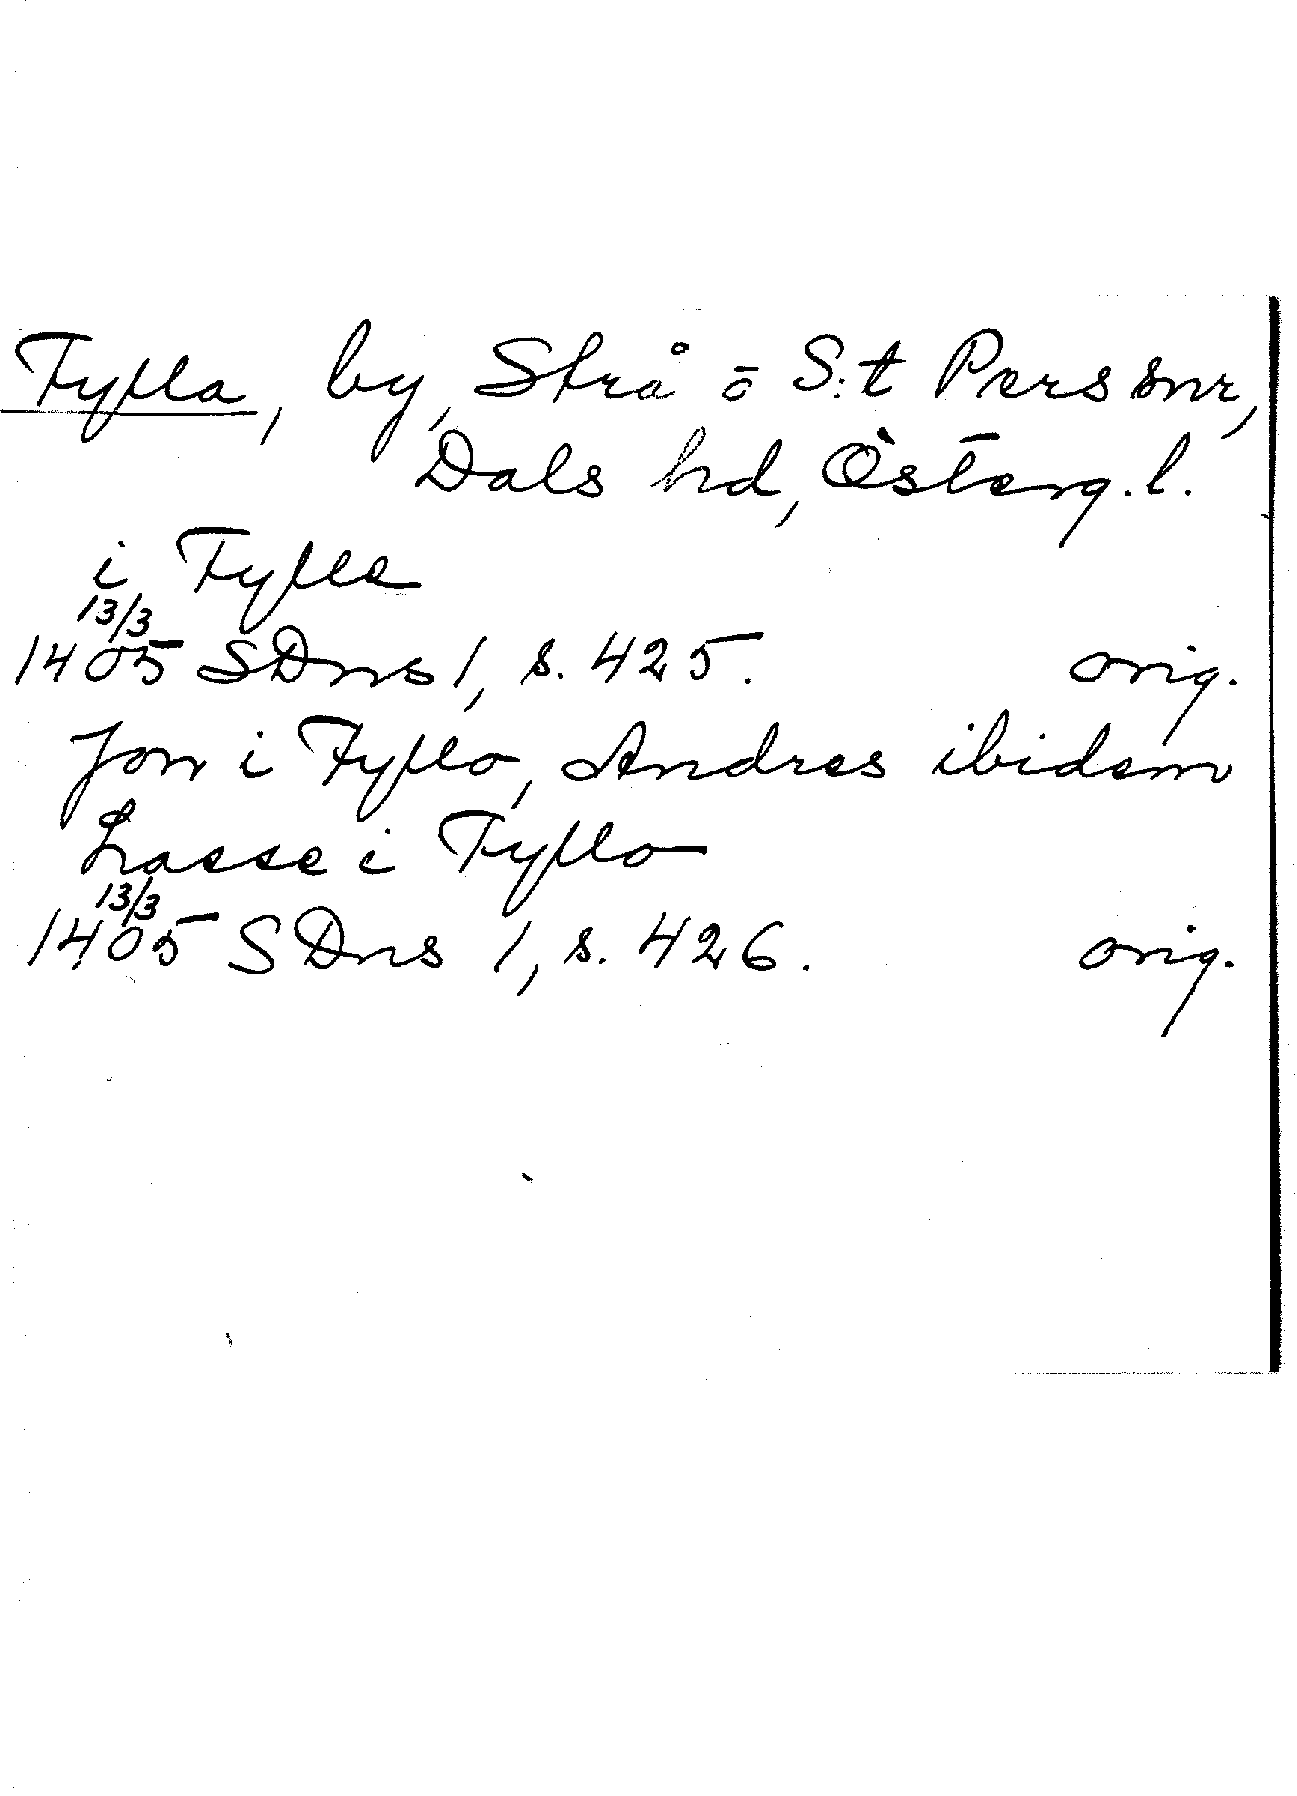 Fylla, by, Strå o S:t Pers snr,
Dals hd, Österg.l.
i Fylle
13/3
1405 SDns 1, s. 425. orig.
Jon i Fyllo, Andres ibidem
Lasse i Fyllo
13/3
1405 SDns 1, s. 426. orig.